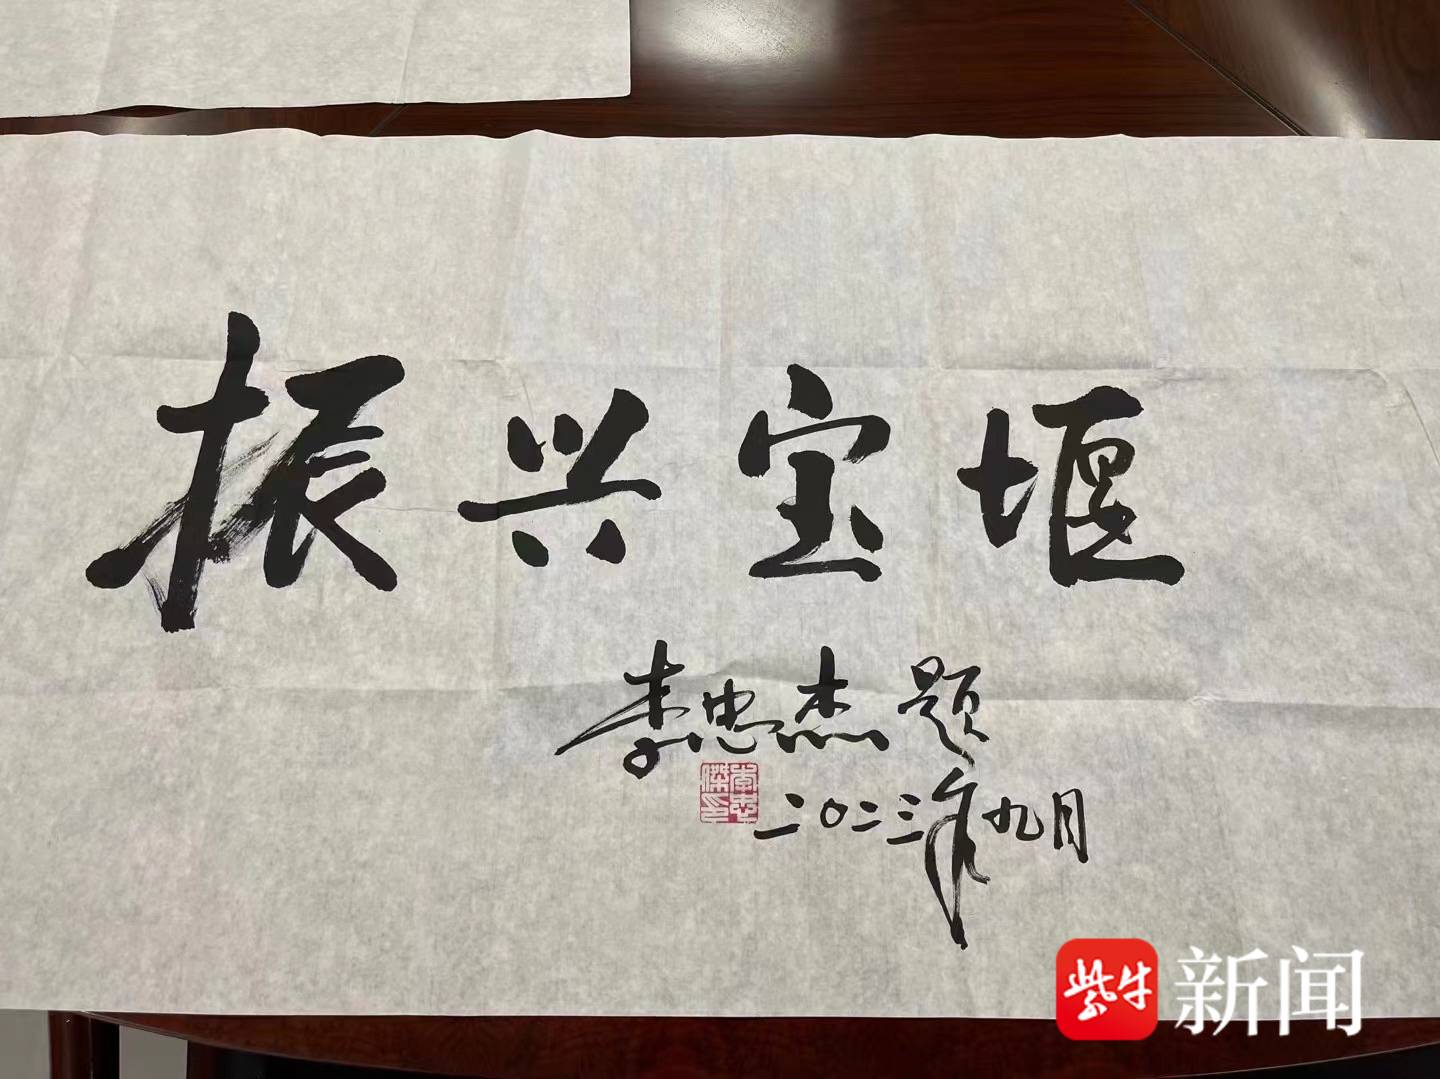 振兴宝堰
李忠杰题
二〇二三年九月
李忠傑印
紫牛新闻